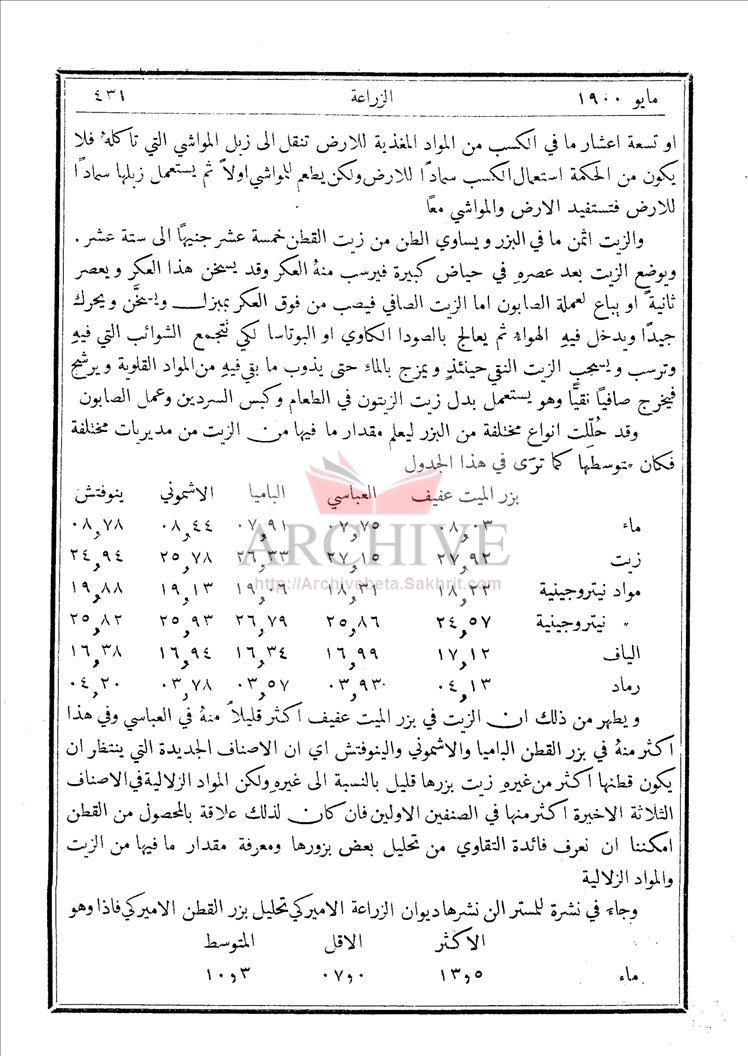 مايو ١٩٠٠ الزراعة ٤٣١
او تسعة اعشار ما في الكسب من المواد المغذية للارض تنقل الى زبل المواشي التي تأكلهُ فلا
يكون من الحكمة استعمال الكسب سمادًا للارض ولكن يطعم للمواشي اولاً ثم يستعمل زبلها سمادًا
للارض فتستفيد الارض والمواشي معًا
والزيت اثمن ما في البزر ويساوي الطن من زيت القطن خمسة عشر جنيهًا الى ستة عشر.
ويوضع الزيت بعد عصرهِ في حياض كبيرة فيرسب منهُ العكر وقد يسخن هذا العكر ويعصر
ثانيةً او يباع لعملة الصابون اما الزيت الصافي فيصب من فوق العكر بمبزل ويسخَّن ويحرك
جيدًا ويدخل فيهِ الهواءُ ثم يعالج بالصودا الكاوي او البوتاسا لكي تتجمع الشوائب التي فيهِ
وترسب ويسحب الزيت النقي حينئذٍ ويمزج بالماء حتى يذوب ما بقي فيهِ من المواد القلوية ويرشح
فيخرج صافيًا نقيًّا وهو يستعمل بدل زيت الزيتون في الطعام وكبس السردين وعمل الصابون
وقد حُلّلت انواع مختلفة من البزر ليعلم مقدار ما فيها من الزيت من مديريات مختلفة
فكان متوسطها كما ترى في هذا الجدول
بزر الميت عفيف العباسي الباميا الاشموني ينوفتش
ماء ٠٨٫٠٣ ٠٧٫٧٥ ٠٧٫٩١ ٠٨٫٤٤ ٠٨٫٧٨
زيت ٢٧٫٩٢ ٢٧٫١٥ ٢٦٫٣٣ ٢٥٫٧٨ ٢٤٫٩٤
مواد نيتروجينية ١٨٫٢٢ ١٨٫٣١ ١٩٫٠٦ ١٩٫١٣ ١٩٫٨٨
" نيتروجينية ٢٤٫٥٧ ٢٥٫٨٦ ٢٦٫٧٩ ٢٥٫٩٣ ٢٥٫٨٢
الياف ١٧٫١٢ ١٦٫٩٩ ١٦٫٣٤ ١٦٫٩٤ ١٦٫٣٨
رماد ٠٤٫١٣ ٠٣٫٩٣ ٠٣٫٥٧ ٠٣٫٧٨ ٠٤٫٢٠
ويظهر من ذلك ان الزيت في بزر الميت عفيف اكثر قليلاً منهُ في العباسي وفي هذا
اكثر منهُ في بزر القطن الباميا والاشموني والينوفتش اي ان الاصناف الجديدة التي ينتظر ان
يكون قطنها اكثر من غيرهِ زيت بزرها قليل بالنسبة الى غيره ولكن المواد الزلالية في الاصناف
الثلاثة الاخيرة اكثر منها في الصنفين الاولين فان كان لذلك علاقة بالمحصول من القطن
امكننا ان نعرف فائدة التقاوي من تحليل بعض بزورها ومعرفة مقدار ما فيها من الزيت
والمواد الزلالية
وجاء في نشرة للمستر الن نشرها ديوان الزراعة الاميركي تحليل بزر القطن الاميركي فاذا وهو
الاكثر الاقل المتوسط
ماء ١٣٫٥ ٠٧٫٠ ١٠٫٣
ARCHIVE
http://Archivebeta.Sakhrit.com